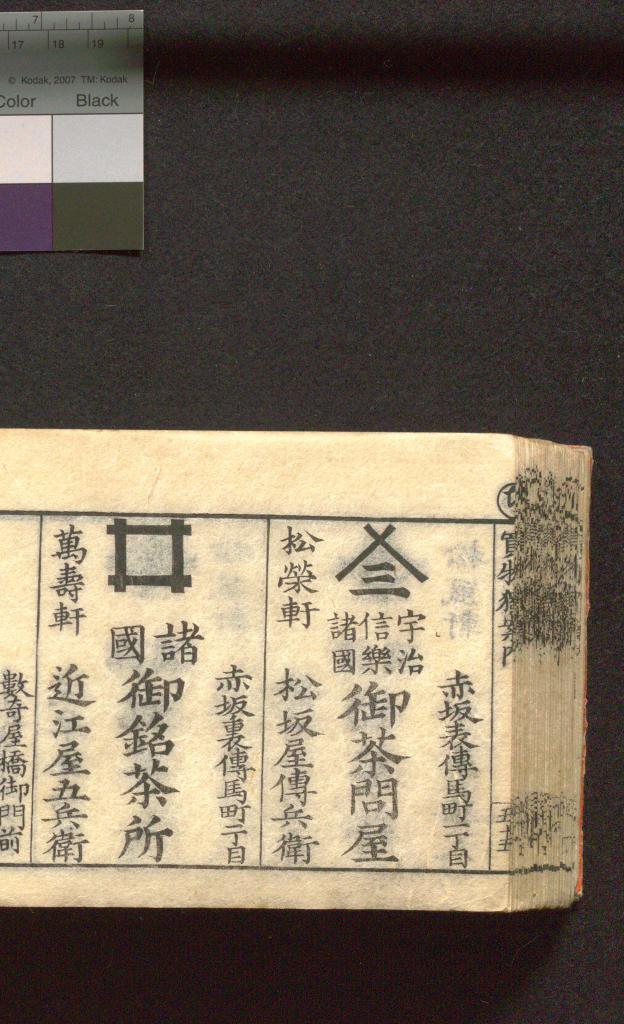 7 8
17 18 19
© Kodak, 2007 TM: Kodak
Color Black
買物獨案內
赤坂表傳馬町一丁目
宇治
信樂
諸國
御茶問屋
松榮軒
松坂屋傳兵衛
赤坂裏傳馬町一丁目
諸國
御銘茶所
萬壽軒
近江屋五兵衛
數奇屋橋御門前